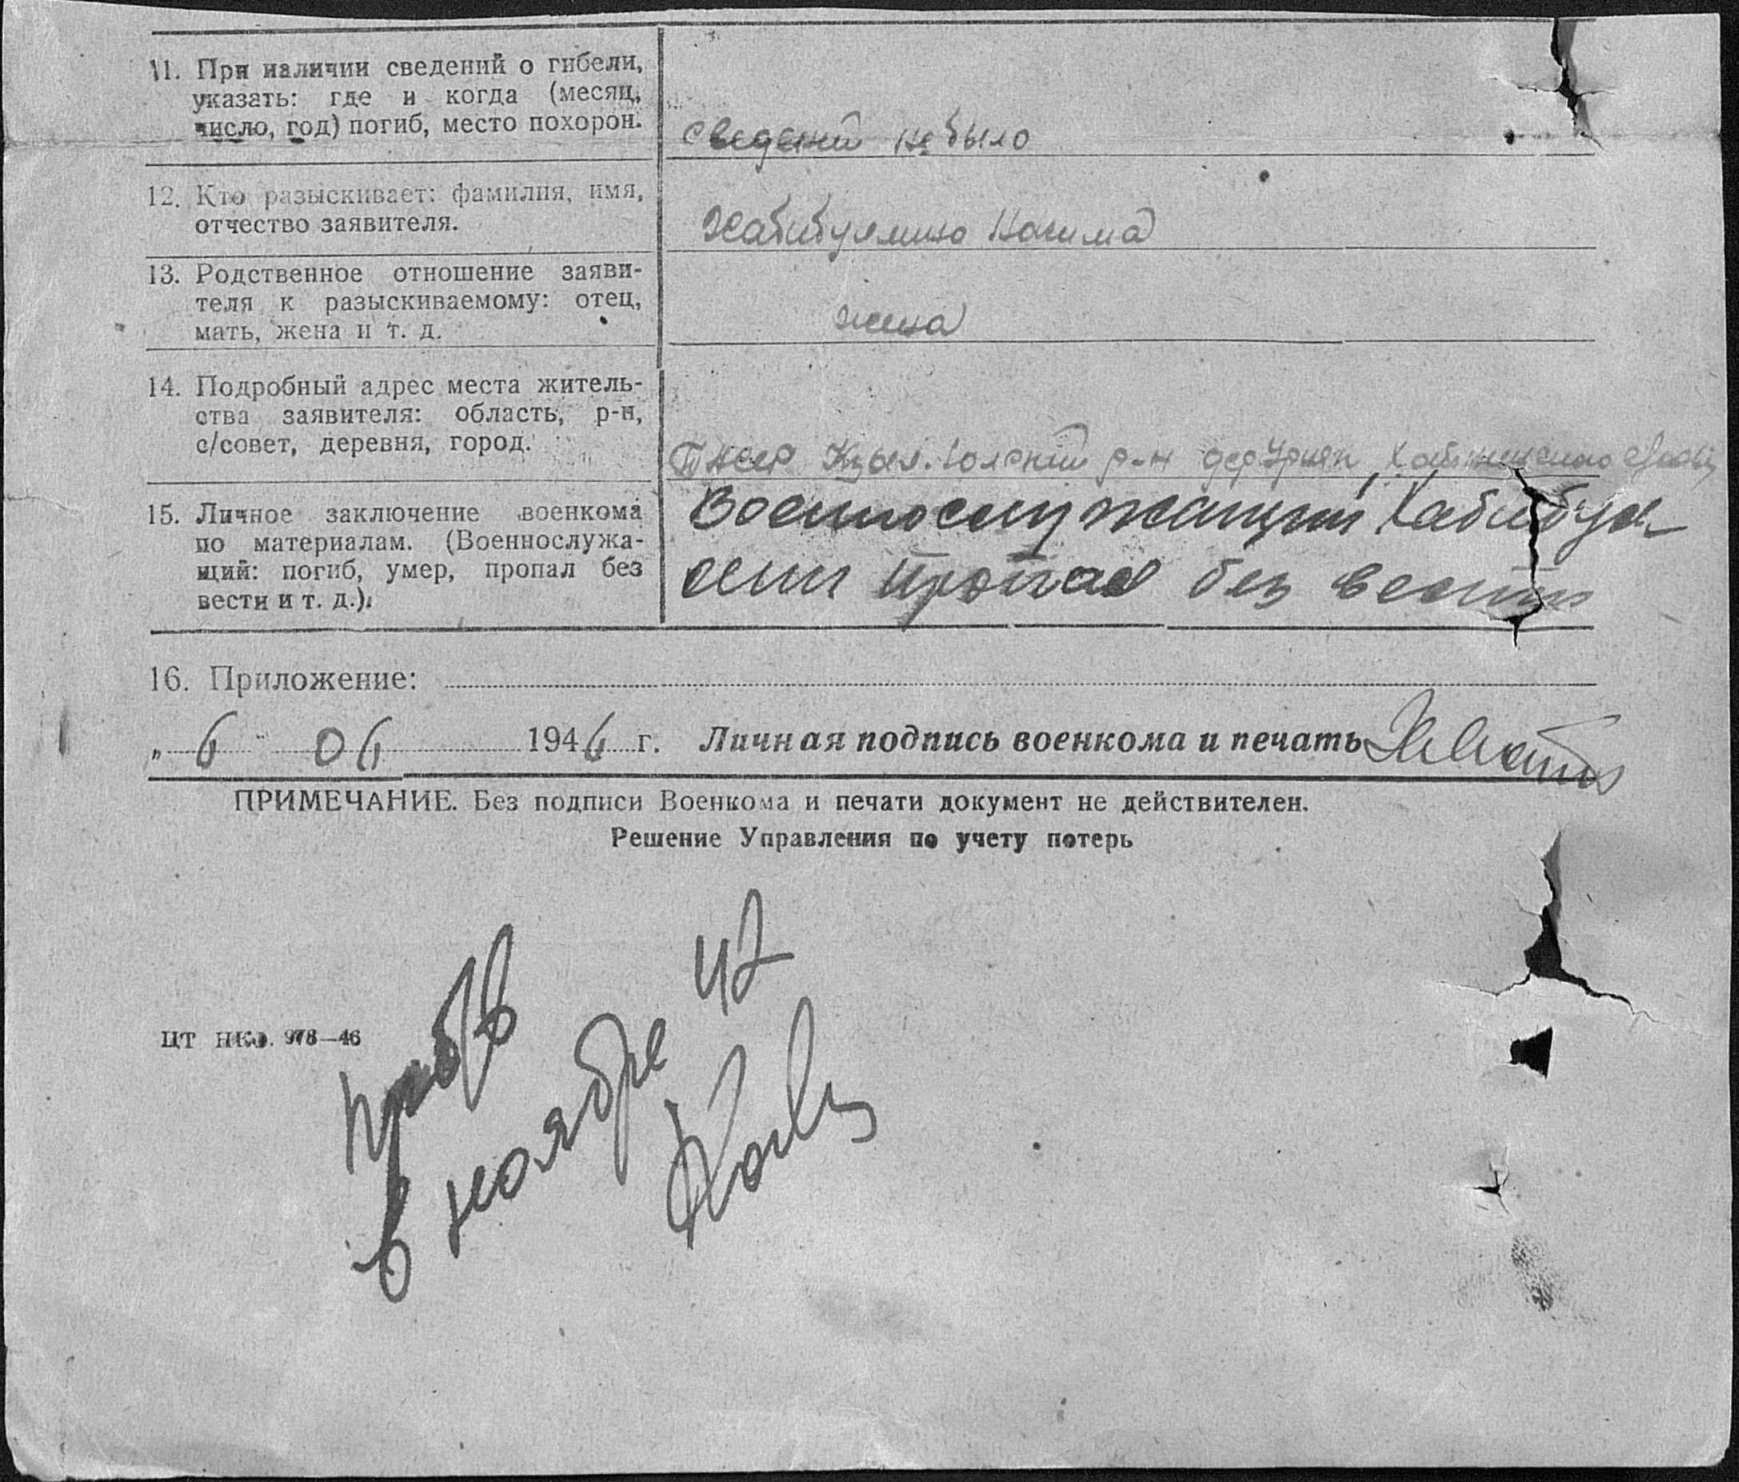 11. При наличии сведений о гибели,
указать: где и когда (месяц,
число, год) погиб, место похорон.
сведений не было
12. Кто разыскивает: фамилия, имя,
отчество заявителя.
Хабибуллина Нагима
13. Родственное отношение заяви-
теля к разыскиваемому: отец,
мать, жена и т. д.
жена
14. Подробный адрес места житель-
ства заявителя: область, р-н,
с/совет, деревня, город.
ТАССР Кзыл-Юлский р-н дер Урняк
15. Личное заключение военкома
по материалам. (Военнослужа-
щий: погиб, умер, пропал без
вести и т. д.).
Военнослужащий Хабибул-
лин пропал без вести
16. Приложение:
„ 6 " 06 1946 г. Личная подпись военкома и печать
ПРИМЕЧАНИЕ. Без подписи Военкома и печати документ не действителен.
Решение Управления по учету потерь
в ноябре 42
ЦТ НКО. 978—46